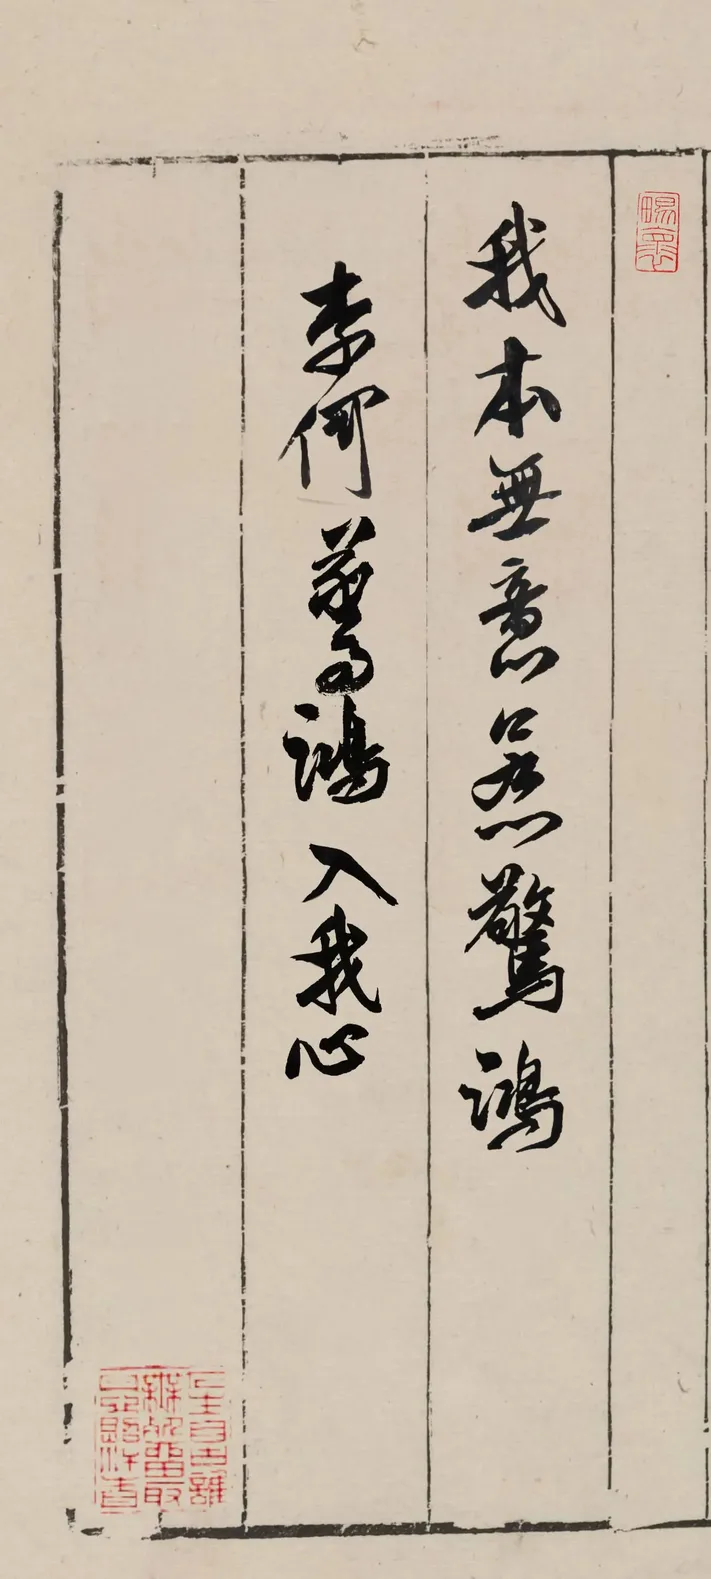 暢懷
我本無意惹驚鴻
奈何驚鴻入我心